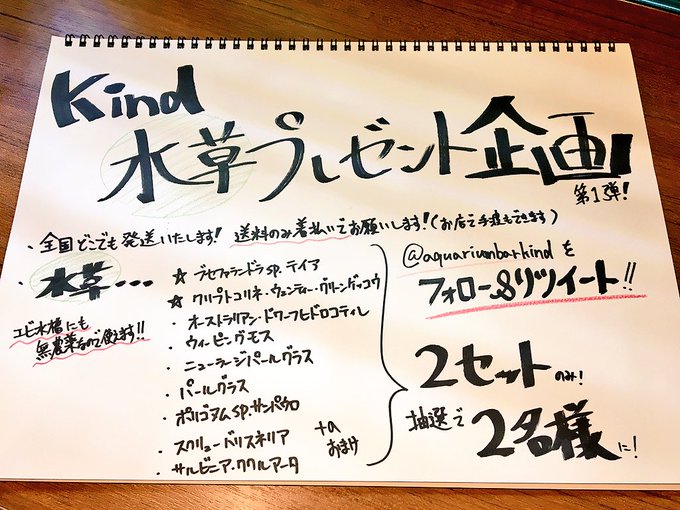 Kind
水草プレゼント企画
第1弾!
・全国どこでも発送いたします! 送料のみ着払いでお願いします!(お店で手渡もできます)
・水草・・・
エビ水槽にも
無農薬なので使えます!!
☆ブセファランドラsp.テイア
☆クリプトコリネ・ウェンティー・グリーンゲッコウ
・オーストラリアン・ドワーフヒドロコティレ
・ウィーピングモス
・ニューラージパールグラス
・パールグラス
・ポリゴヌムsp.サンパウロ
・スクリューバリスネリア
・サルビニア・ククルアータ
+α
おまけ
@aquariumbarkindを
フォロー&リツイート!!
2セットのみ!
抽選で2名様に!